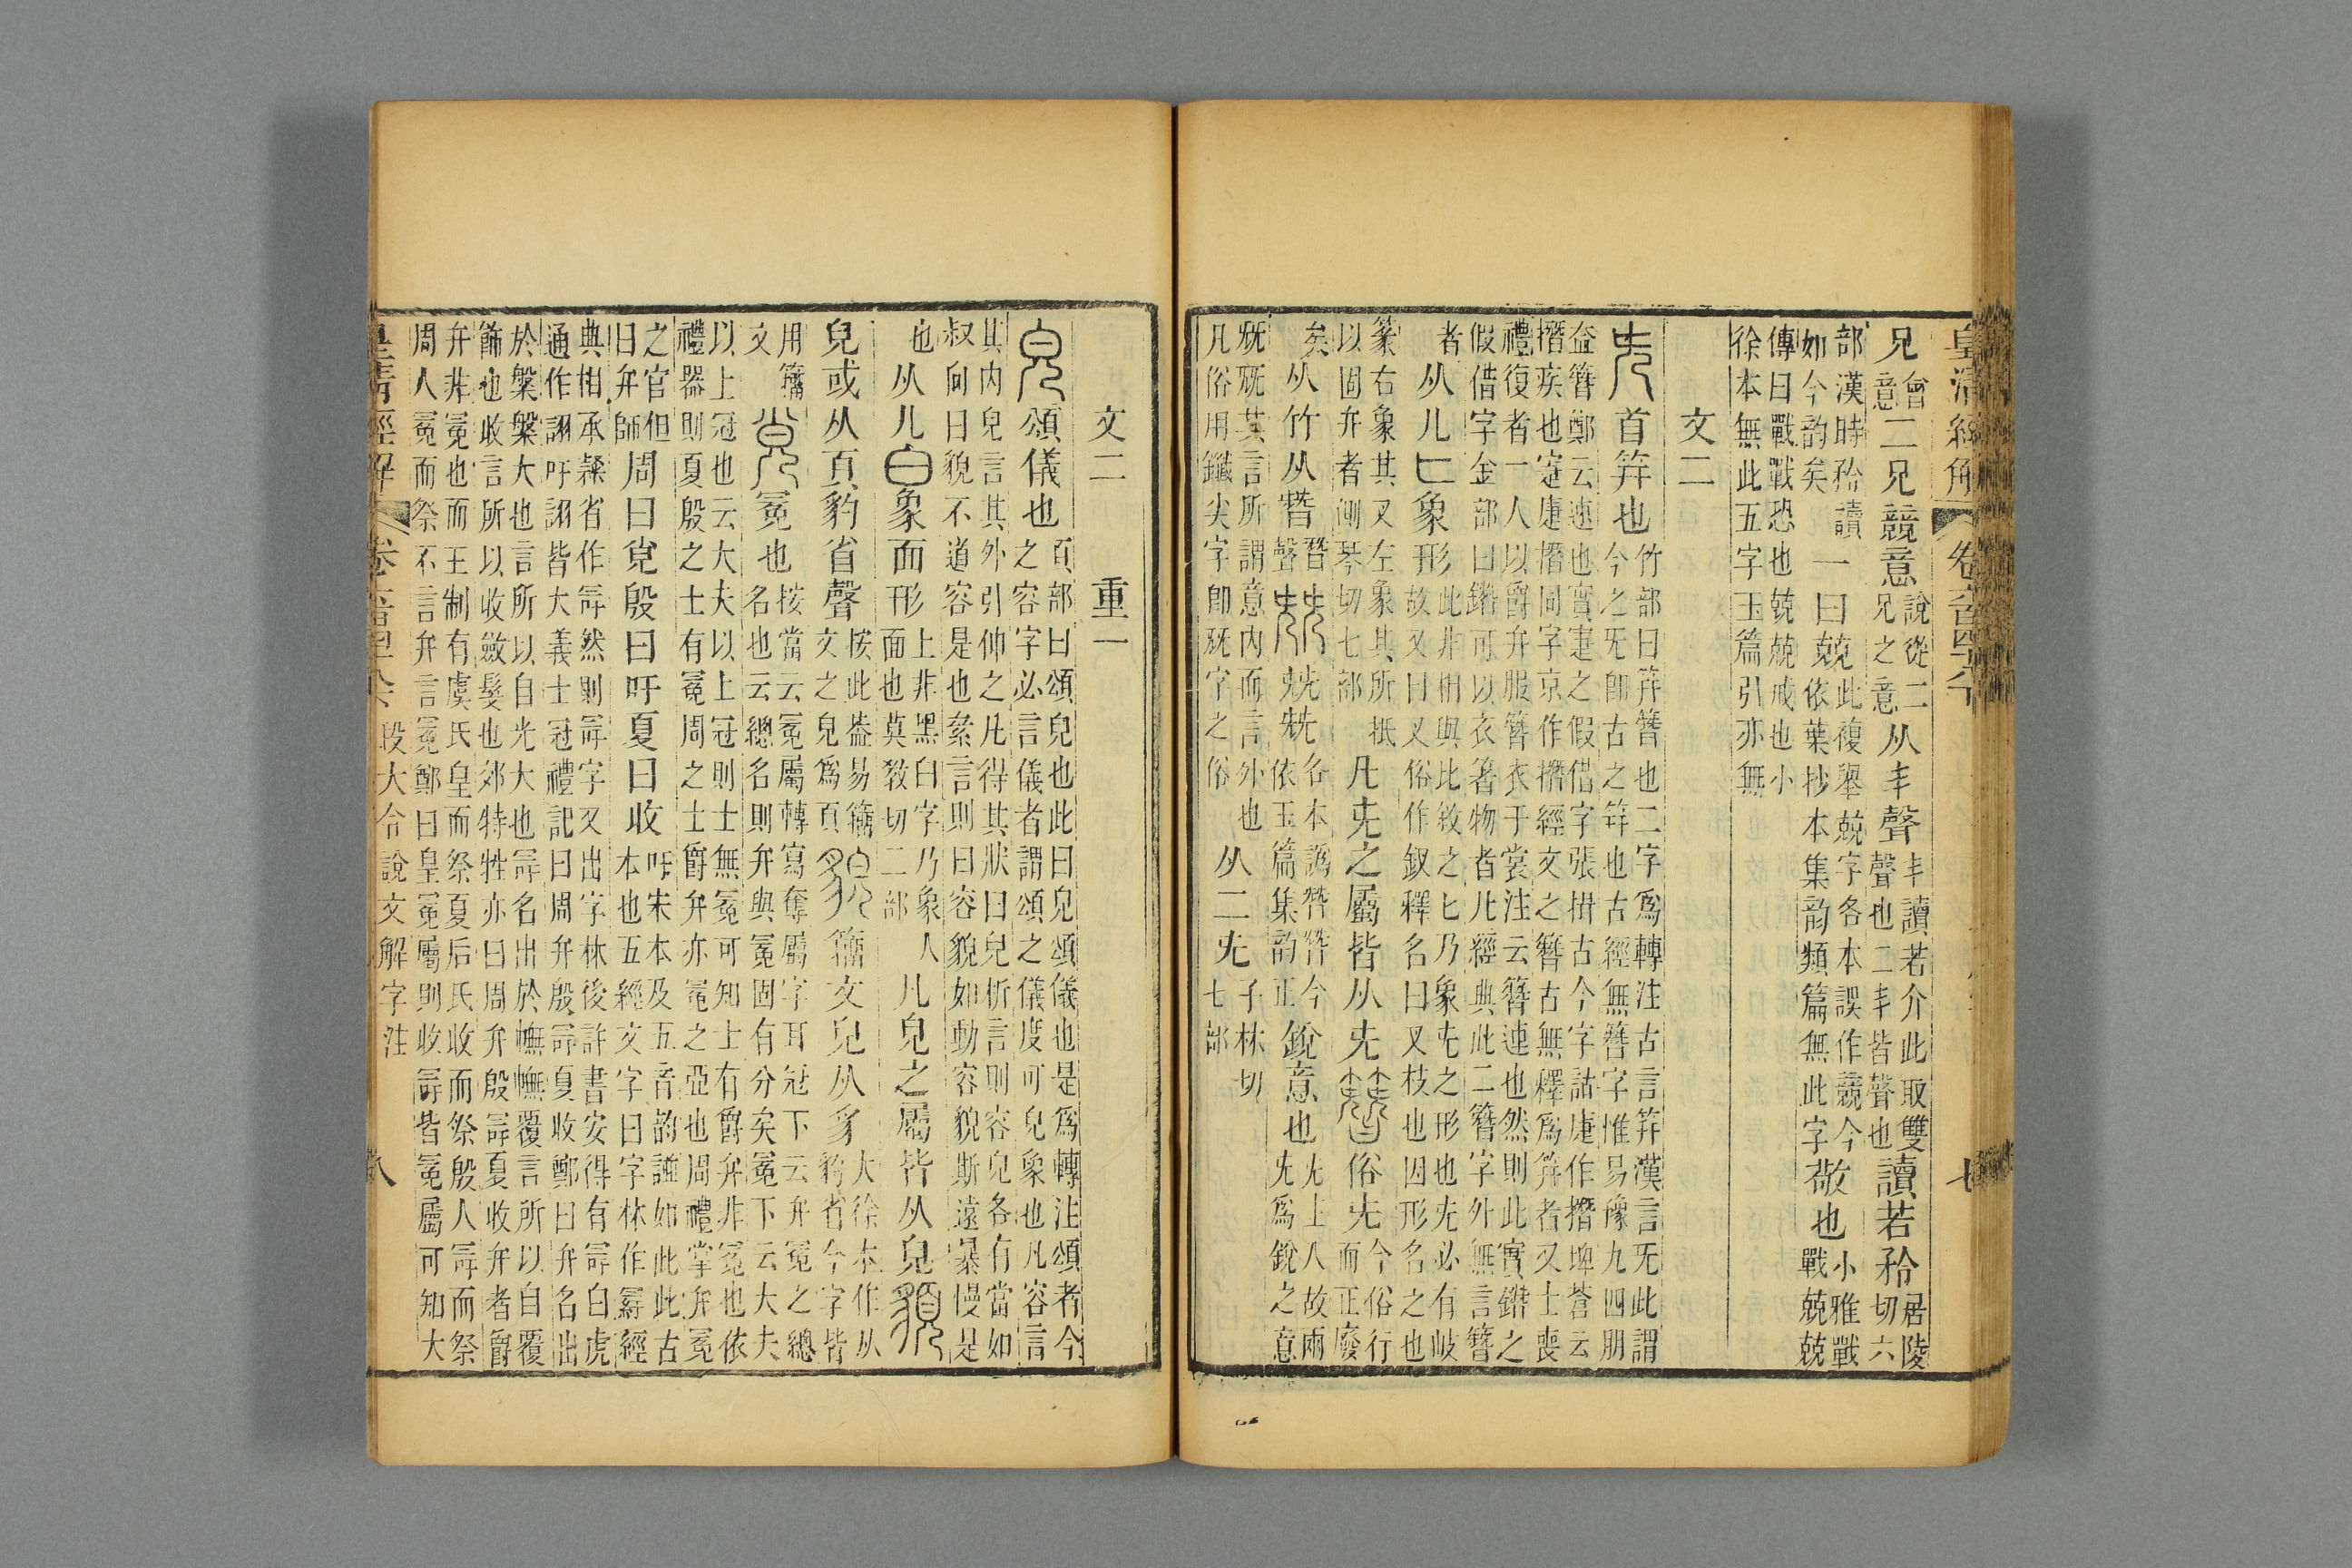 皇清經解 卷六百四十八 七
兄會意二兄競意說從二兄之意从丯聲丯讀若介此取雙聲也二丯皆聲也讀若矜居陵切六
部漢時矜讀如今韵矣一曰兢此複舉兢字各本誤作競今依葉抄本集韵類篇無此字敬也小雅戰戰兢兢
傳曰戰戰恐也兢兢戒也小徐本無此五字玉篇引亦無
文二
兂首筓也竹部曰筓簪也二字爲轉注古言筓漢言兂此謂今之兂卽古之筓也古經無簪字惟易豫九四朋
盍簪鄭云速也實疌之假借字張揖古今字詁疌作撍埤蒼云撍疾也寁疌撍同字京作撍經文之簪古無釋爲筓者又士喪
禮復者一人以爵弁服簪衣于裳注云簪連也然則此實鐕之假借字金部曰鐕可以衣箸物者凡經典此二簪字外無言簪
者从儿匕象形此非相與比敘之匕乃象兂之形也兂必有岐故又曰叉俗作釵釋名曰叉枝也因形名之也
篆右象其叉左象其所抵以固弁者側琴切七部凡兂之屬皆从兂簪俗兂今俗行而正廢
矣从竹从朁朁聲兓兓兓各本譌朁朁今依玉篇集韵正銳意也兂上八故兩兂爲銳之意
兓兓其言所謂意內而言外也凡俗用鑯尖字卽兓字之俗从二兂子林切七部
文二 重一
皃頌儀也頁部曰頌皃也此曰皃頌儀也是爲轉注頌者今之容字必言儀者謂頌之儀度可皃象也凡容言
其內皃言其外引伸之凡得其狀曰皃析言則容皃各有當如叔向曰貌不道容是也絫言則曰容貌如動容貌斯遠暴慢是
也从儿白象面形上非黑白字乃象人面也莫敎切二部凡皃之屬皆从皃䫉
皃或从頁豹省聲按此葢易籒文之皃爲頁貌籒文皃从豸大徐本作从豹省今字皆
用籒文覍冕也按當云冕屬轉寫奪屬字耳冠下云弁冕之總名也云總名則弁與冕固有分矣冕下云大夫
以上冠也云大夫以上冠則士無冕可知士有爵弁非冕也依禮器則夏殷之士有冕周之士爵弁亦冕之亞也周禮掌弁冕
之官但曰弁師周曰覍殷曰吁夏曰收吁宋本及五音韵譜如此此古本也五經文字曰字林作冔經
典相承隸省作冔然則冔字又出字林後許書安得有冔白虎通作詡吁詡皆大義士冠禮記曰周弁殷冔夏收鄭曰弁名出
於槃槃大也言所以自光大也冔名出於幠幠覆言所以自覆飾也收言所以收斂髮也郊特牲亦曰周弁殷冔夏收弁者爵
弁非冕也而王制有虞氏皇而祭夏后氏收而祭殷人冔而祭周人冕而祭不言弁言冕鄭曰皇冕屬則收冔皆冕屬可知大
皇清經解 卷六百四十八 段大令說文解字注 八